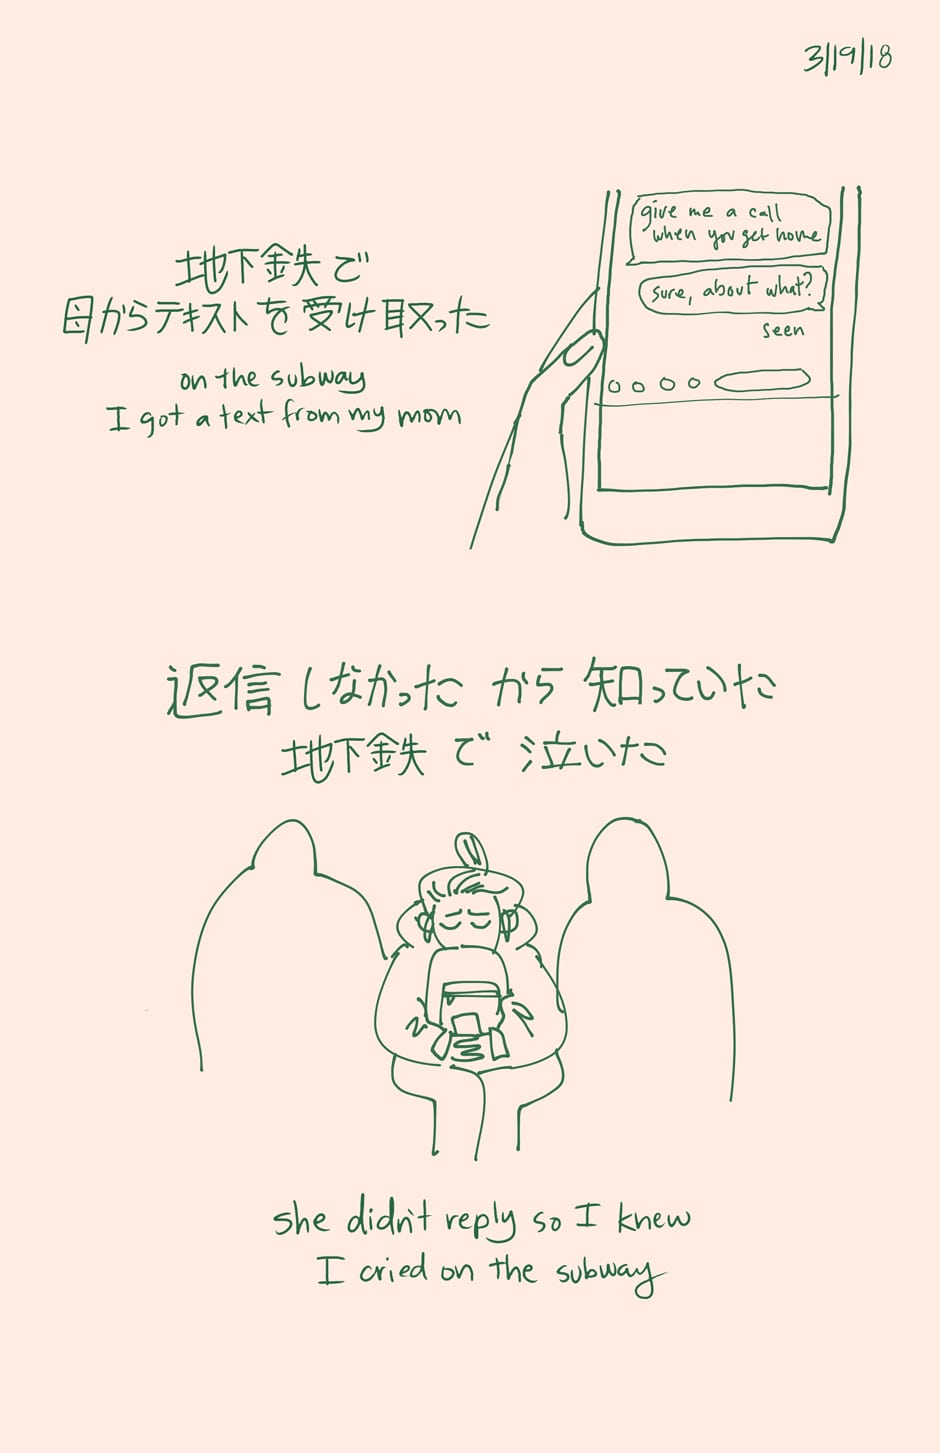 3/19/18
地下鉄で
母からテキストを受け取った
on the subway
I got a text from my mom
give me a call
when you get home
sure, about what?
seen
返信しなかったから知っていた
地下鉄で泣いた
she didn't reply so I knew
I cried on the subway